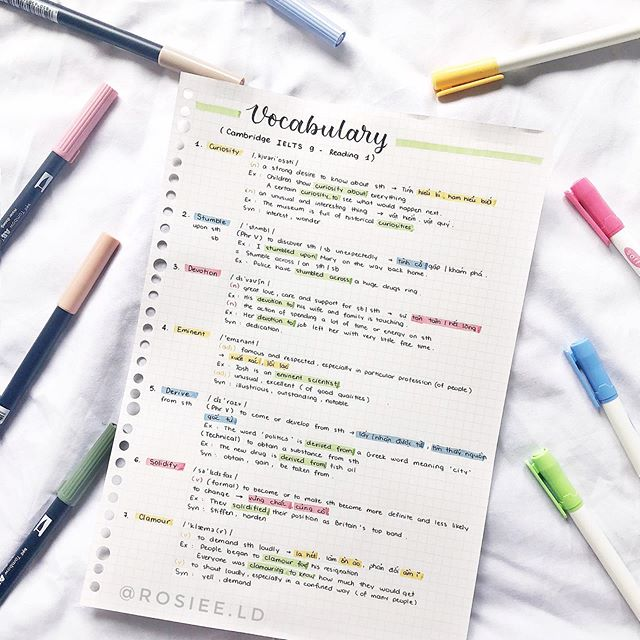 Vocabulary
(Cambridge IELTS 9 - Reading 1)
1. Curiosity
(n) a strong desire to know about sth → Tính hiếu kì, ham hiểu biết
Ex : Children show curiosity about everything
A certain curiosity to see what would happen next.
(n) an unusual and interesting thing → vật hiếm, vật quý.
Ex : The museum is full of historical curiosities
Syn : interest, wonder
2. Stumble
upon sth
sb
(Phr V) to discover sth / sb unexpectedly → tình cờ gặp / khám phá.
Ex : I stumbled upon Mary on the way back home.
= Stumble across / on sth / sb
Ex : Police have stumbled across a huge drugs ring
3. Devotion
(n) great love, care and support for sb | sth → sự tận tâm / hết lòng
Ex : His devotion to his wife and family is touching.
(n) the action of spending a lot of time or energy on sth
Ex : Her devotion to job left her with very little free time.
Syn : dedication.
4. Eminent
(adj) famous and respected, especially in particular profession (of people)
→ xuất sắc, lỗi lạc
Ex : Josh is an eminent scientist
(adj) unusual, excellent (of good qualities)
Syn : illustrious, outstanding, notable
5. Derive
from sth
(Phr V) to come or develop from sth → lấy / nhận được từ, tìm thấy nguồn
gốc từ
Ex : The word 'politics' is derived from a Greek word meaning 'city'
(Technical) to obtain a substance from sth
Ex : the new drug is derived from fish oil
Syn : obtain, gain, be taken from
6. Solidify
(v) (formal) to become or to make sth become more definite and less likely
to change → vững chắc, củng cố
Ex : They solidified their position as Britain's top band.
Syn : Stiffen, harden
7. Clamour
(v) to demand sth loudly → la hét, làm ồn ào, phản đối ầm ĩ
Ex : People began to clamour for his resignation
Everyone was clamouring to know how much they would get
(v) to shout loudly, especially in a confused way (of many people)
Syn : yell, demand
@ROSIEE.LD